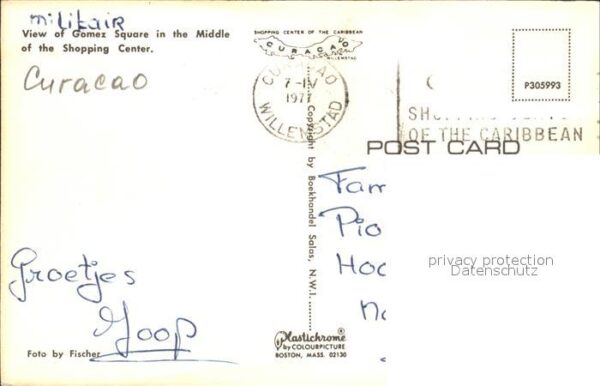 militair
View of Gomez Square in the Middle
of the Shopping Center.
Curacao
Groetjes
Joop
Foto by Fischer
SHOPPING CENTER OF THE CARIBBEAN
CURACAO
WILLEMSTAD
CURACAO
7-IV
1971
WILLEMSTAD
OF THE CARIBBEAN
P305993
POST CARD
Copyright by Boekhandel Salas, N.W.I.
Plastichrome®
by COLOURPICTURE
BOSTON, MASS. 02130
Fam
Pio
Hoo
privacy protection
Datenschutz